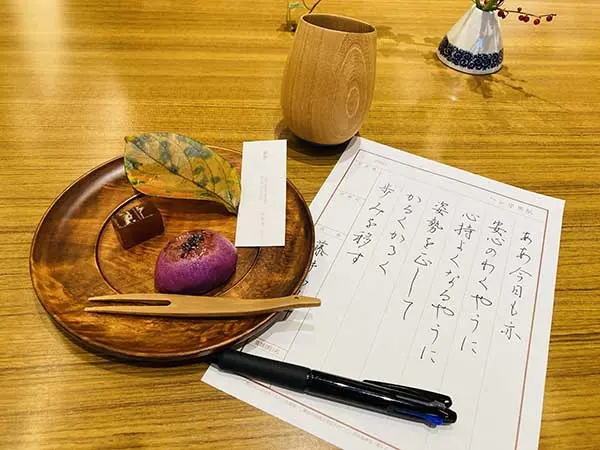 ああ今日も亦
安心のわくやうに
心持よくなるやうに
姿勢を正して
かるくかるく
歩みを移す